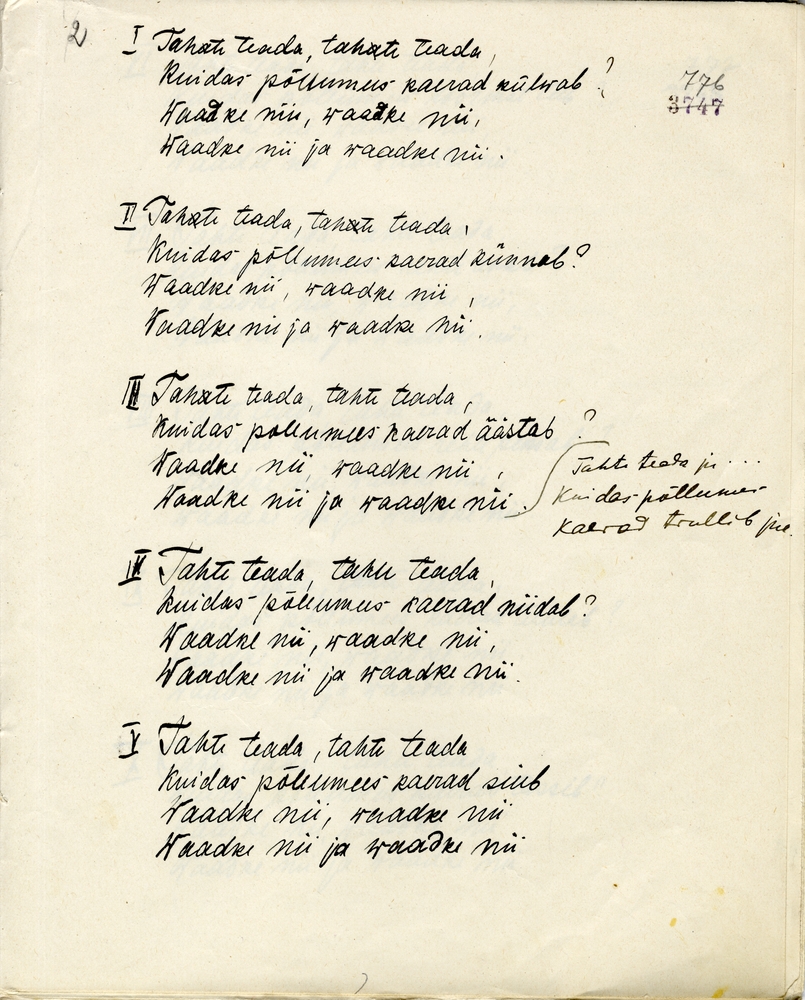 2
I Tahate teada, tahate teada,
Kuidas põllumees kaerad külwab?
776
3747
Waadke nii, waadke nii,
Waadke nii ja waadke nii.
II Tahate teada, tahate teada,
Kuidas põllumees kaerad künnab?
Waadke nii, waadke nii,
Waadke nii ja waadke nii.
III Tahate teada, tahte teada,
Kuidas põllumees kaerad äästab?
Waadke nii, waadke nii,
Waadke nii ja waadke nii.
Tahte teada ju ...
Kuidas põllumees
kaerad trullib jne.
IV Tahte teada, tahte teada,
Kuidas põllumees kaerad niidab?
Waadke nii, waadke nii,
Waadke nii ja waadke nii.
V Tahte teada, tahte teada
Kuidas põllumees kaerad siub
Waadke nii, waadke nii
Waadke nii ja waadke nii